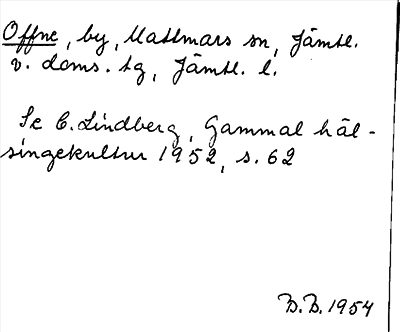 Offne, by, Mattmars sn, Jämtl.
v. doms. tg, Jämtl. l.
Se C. Lindberg, Gammal häl-
singekultur 1952, s. 62
B.B. 1954